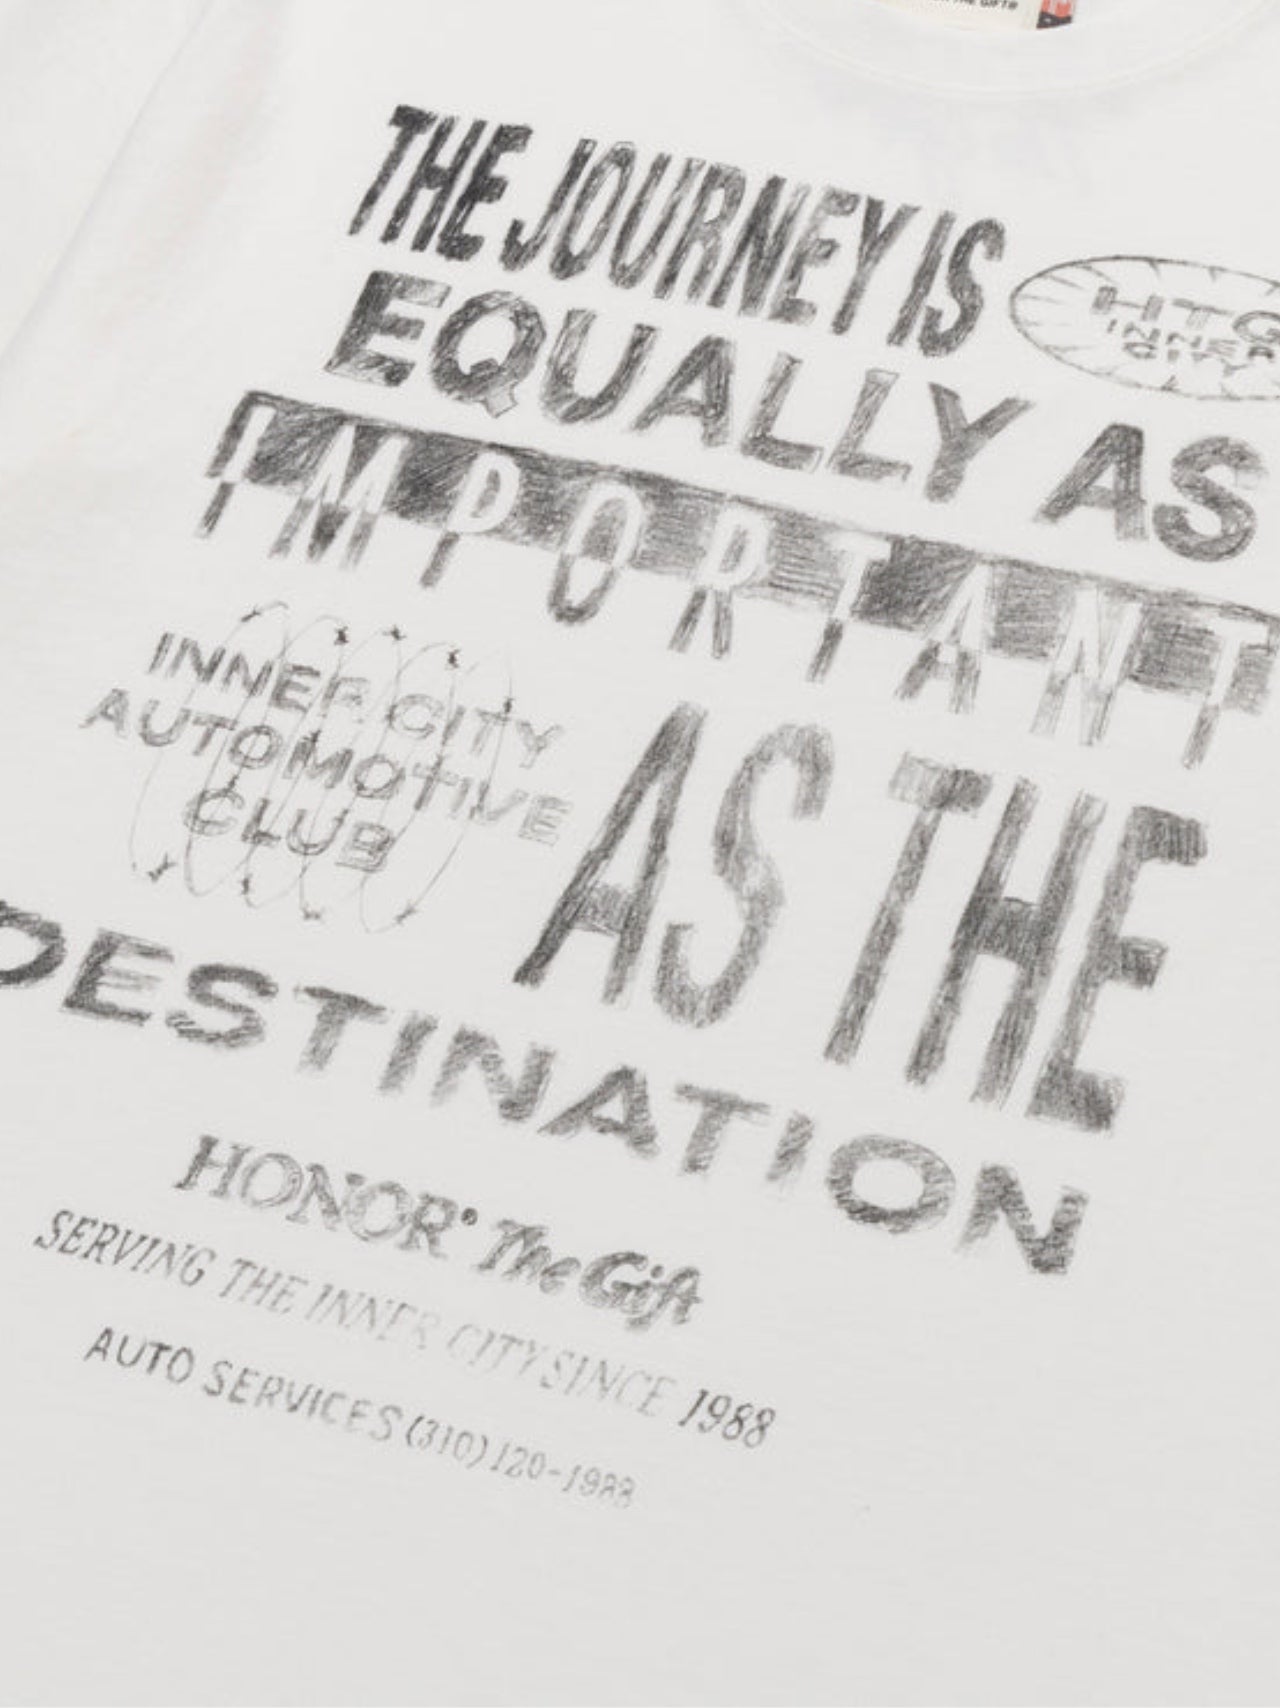 THE GIFT®
THE JOURNEY IS
HTG
INNER
CITY
EQUALLY AS
IMPORTANT
INNER CITY
AUTOMOTIVE
CLUB
AS THE
DESTINATION
HONOR® The Gift
SERVING THE INNER CITY SINCE 1988
AUTO SERVICES (310) 120-1988